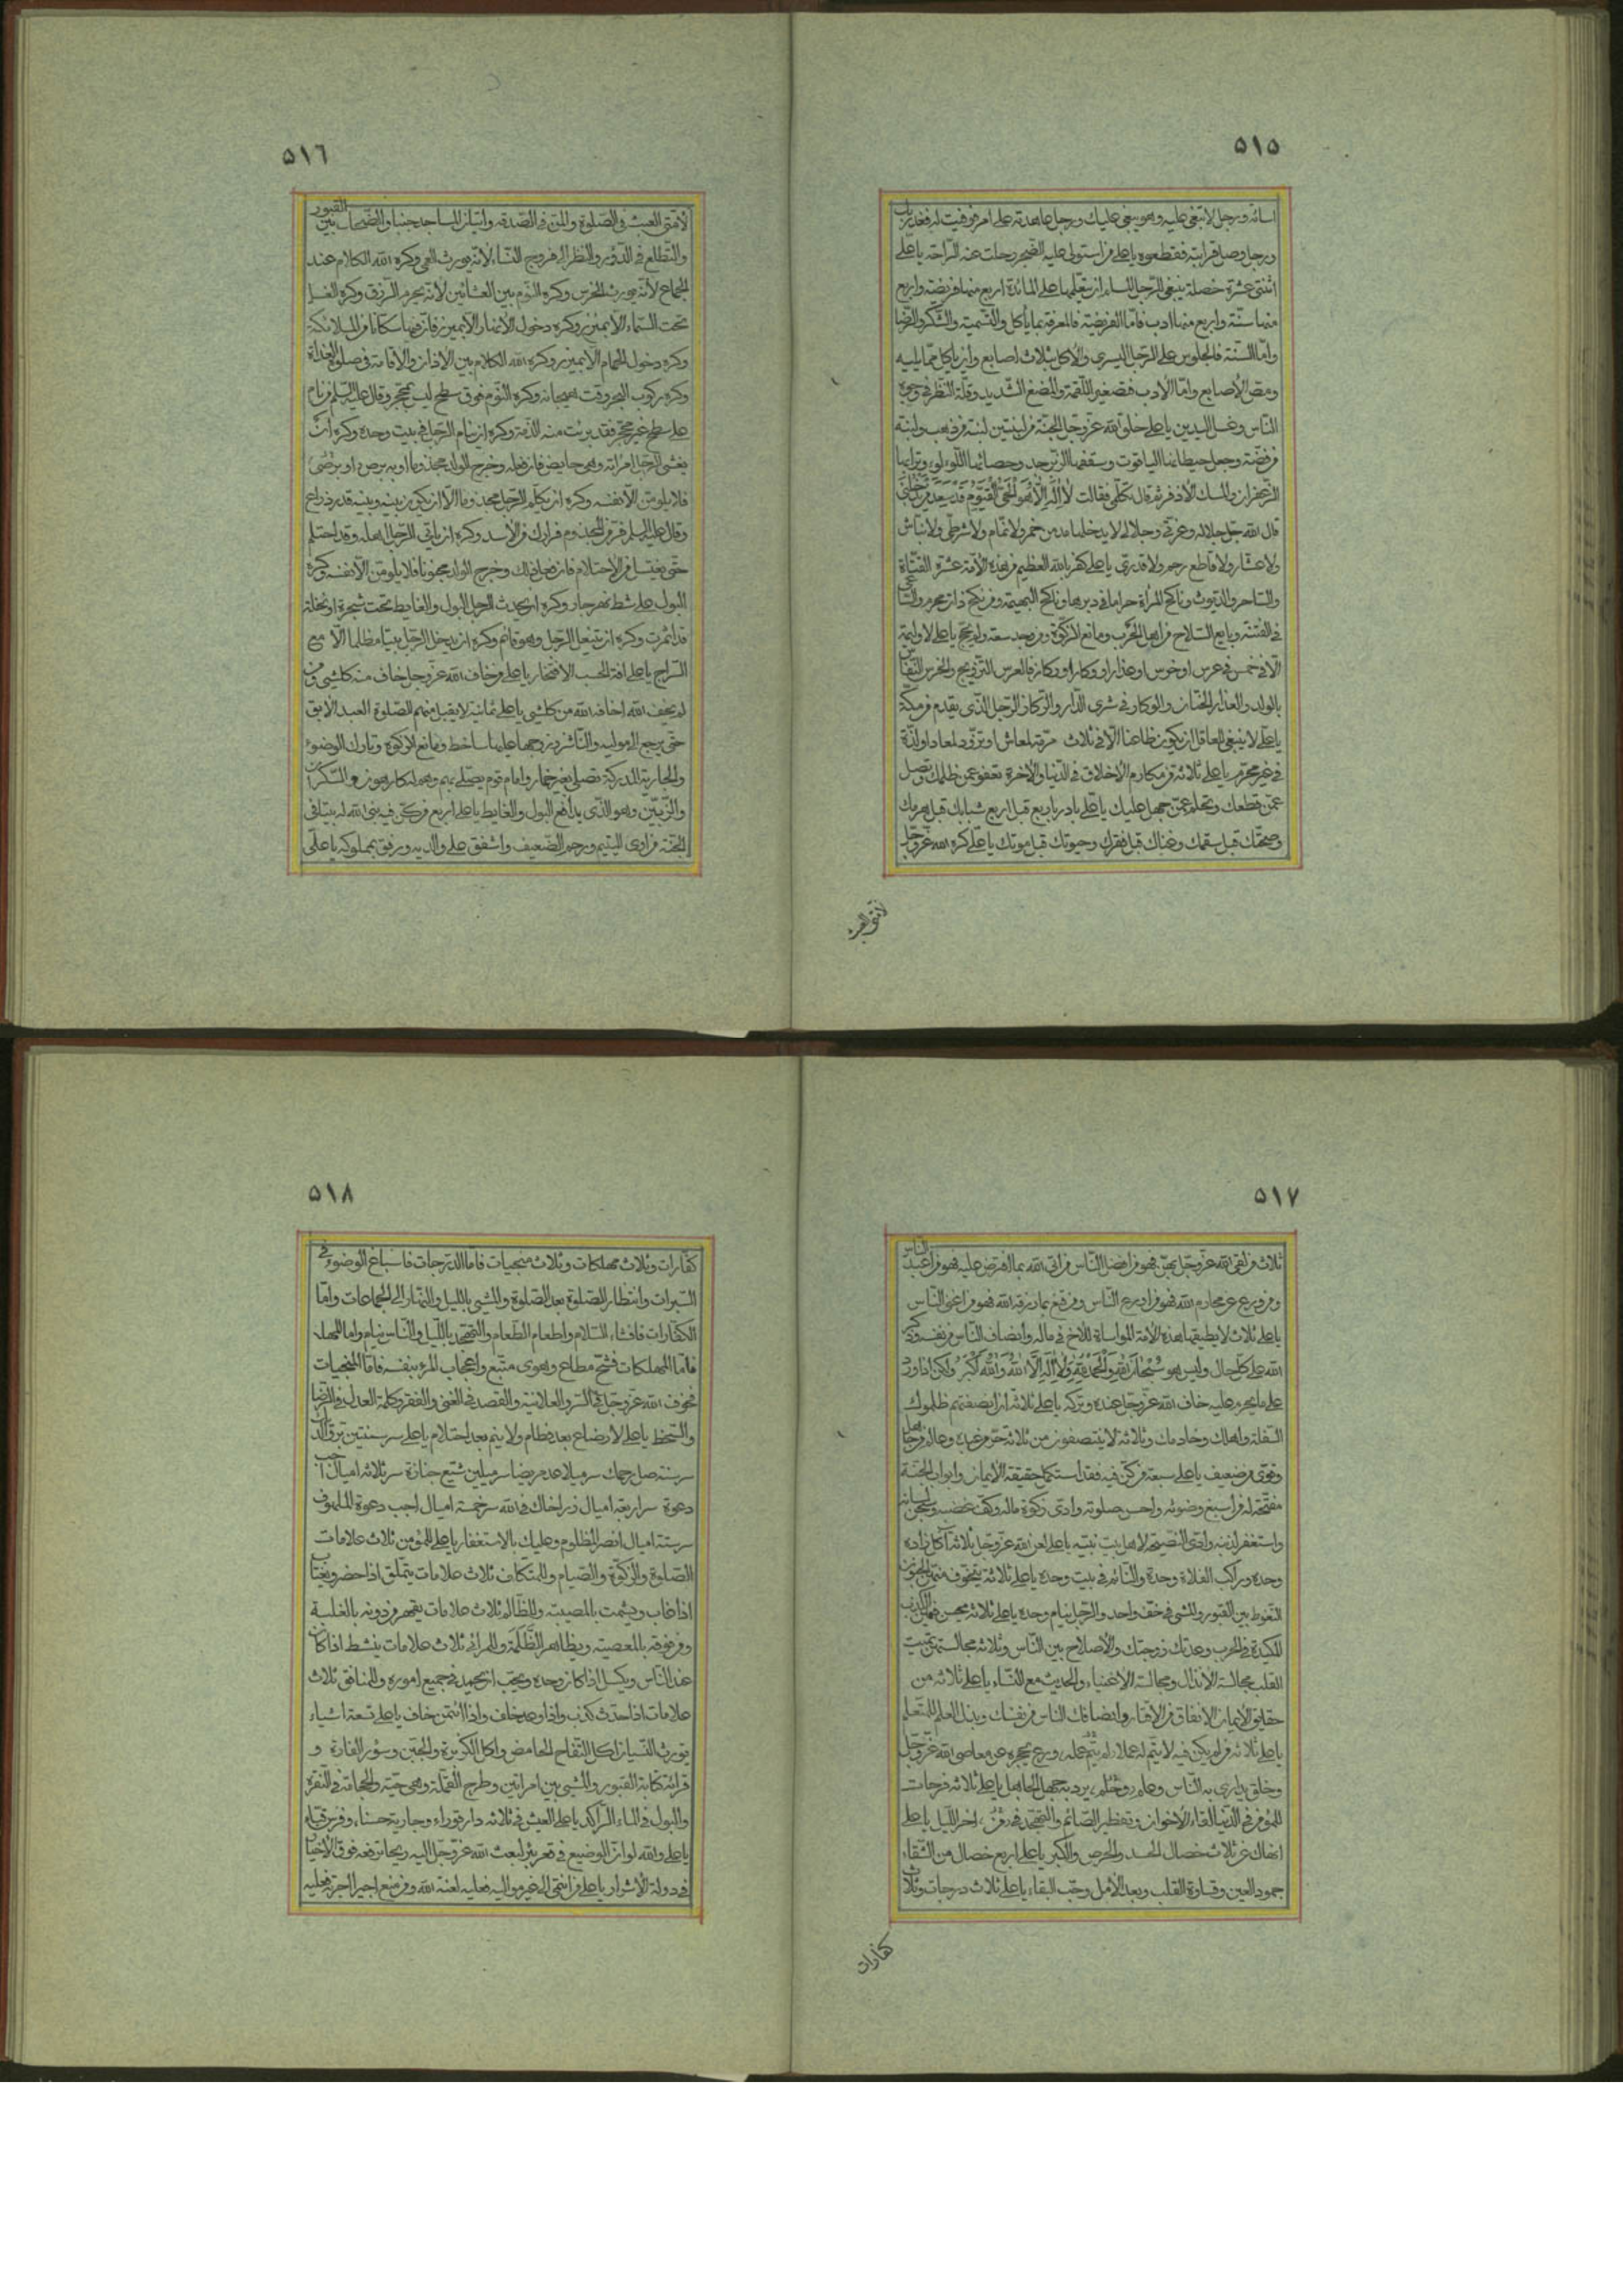 ٥١٥
اسائة ورجل لا تبغى عليه وهو يبغى عليك ورجل عاهدته على امر فوفيت له فغدر بك
ورجل وصل قرابته فقطعوه يا على من استولى عليه الضجر رحلت عنه الراحة يا على
اثنتى عشرة خصلة ينبغى للرجل المسلم ان يتعلمها على المائدة اربع منها فريضة واربع
منها سنة واربع منها ادب فاما الفريضة فالمعرفة بما يأكل والتسمية والشكر والرضا
واما السنة فالجلوس على الرجل اليسرى والاكل بثلاث اصابع وان يأكل مما يليه
ومص الاصابع واما الادب فتصغير اللقمة والمضغ الشديد وقلة النظر فى وجوه
الناس وغسل اليدين يا على خلق الله عز وجل الجنة من لبنتين لبنة من ذهب ولبنة
من فضة وجعل حيطانها الياقوت وسقفها الزبرجد وحصائها اللؤلؤ وترابها
الزعفران والمسك الاذفر ثم قال لها تكلمى فقالت لا اله الا هو الحى القيوم قد سعد من يدخلنى
قال الله جل جلاله وعزتى وجلالى لا يدخلها مدمن خمر ولا نمام ولا شرطى ولا نباش
ولا عشار ولا قاطع رحم ولا قدرى يا على كفر بالله العظيم من هذه الامة عشرة القتاة
والساحر والديوث وناكح المرأة حراما فى دبرها وناكح البهيمة ومن نكح ذات محرم والساعى
فى الفتنة وبايع السلاح من اهل الحرب ومانع الزكوة ومن وجد سعة ولم يحج يا على لا وليمة
الا فى خمس فى عرس او خرس او عذار او وكار او ركاز فالعرس التزويج والخرس النفاس
بالولد والعذار الختان والوكار فى شرى الدار والركاز الرجل الذى يقدم من مكة
يا على لا ينبغى للعاقل ان يكون ظاعنا الا فى ثلاث مرمة لمعاش او تزود لمعاد او لذة
فى غير محرم يا على ثلاثة من مكارم الاخلاق فى الدنيا والاخرة تعفو عمن ظلمك وتصل
من قطعك وتحلم عمن جهل عليك يا على بادر باربع قبل اربع شبابك قبل هرمك
وصحتك قبل سقمك وغناك قبل فقرك وحيوتك قبل موتك يا على كره الله عز وجل
٥١٦
لامتى العبث فى الصلوة والمن فى الصدقة واتيان المساجد جنبا والضحك بين القبور
والتطلع فى الدور والنظر الى فروج النساء لانه يورث العمى وكره الله الكلام عند
الجماع لانه يورث الخرس وكره النوم بين العشائين لانه يحرم الرزق وكره الغسل
تحت السماء الا بميزر وكره دخول الانهار الا بميزر فان فيها سكانا من الملائكة
وكره دخول الحمام الا بميزر وكره الله الكلام بين الاذان والاقامة فى صلوة الغداة
وكره ركوب البحر وقت هيجانه وكره النوم فوق سطح ليس بمحجر وقال عليه السلم من نام
على سطح غير محجر فقد برئت منه الذمة وكره ان ينام الرجل فى بيت وحده وكره ان
يغشى الرجل امرأته وهى حايض فان فعل وخرج الولد مجذوما او به برص او برصى
فلا يلومن الا نفسه وكره ان يكلم الرجل مجذوما الا ان يكون بينه وبينه قدر ذراع
وقال عليه السلم فر من المجذوم فرارك من الاسد وكره ان يأتى الرجل اهله وقد احتلم
حتى يغتسل من الاحتلام فان فعل ذلك وخرج الولد مجنونا فلا يلومن الا نفسه وكره
البول على شط نهر جار وكره ان يحدث الرجل البول والغايط تحت شجرة او نخلة
قد اثمرت وكره ان يتنعل الرجل وهو قائم وكره ان يدخل الرجل بيتا مظلما الا مع
السراج يا على افة الحسب الافتخار يا على من خاف الله عز وجل خاف منه كل شئ ومن
لم يخف الله اخافه الله من كل شئ يا على ثمانية لا يقبل منهم الصلوة العبد الابق
حتى يرجع الى مواليه والناشز وزوجها عليها ساخط ومانع الزكوة وتارك الوضوء
والجارية المدركة تصلى بغير خمار وامام قوم يصلى بهم وهم له كارهون والسكران
والزبين وهو الذى يدافع البول والغايط يا على اربع من كن فيه بنى الله له بيتا فى
الجنة من اوى اليتيم ورحم الضعيف واشفق على والديه ورفق بمملوكه يا على
٥١٧
ثلاث من لقى الله عز وجل بهن فهو من افضل الناس من اتى الله بما افترض عليه فهو من اعبد الناس
ومن ورع عن محارم الله فهو من اورع الناس ومن قنع بما رزقه الله فهو من اغنى الناس
يا على ثلاث لا يطيقها هذه الامة المواساة للاخ فى ماله وانصاف الناس من نفسه وذكر
الله على كل حال وليس هو سبحان الله والحمد لله ولا اله الا الله والله اكبر ولكن اذا ورد
على ما يحرم عليه خاف الله عز وجل عنده وتركه يا على ثلاثة ان انصفتهم ظلموك
السفلة واهلك وخادمك وثلاثة لا ينتصفون من ثلاثة حر من عبد وعالم من جاهل
وقوى من ضعيف يا على سبعة من كن فيه فقد استكمل حقيقة الايمان وابواب الجنة
مفتحة له من اسبغ وضوئه واحسن صلوته وادى زكوة ماله وكف غضبه وسجن لسانه
واستغفر لذنبه وادى النصيحة لاهل بيت نبيه يا على لعن الله عز وجل ثلاثة آكل زاده
وحده وراكب الفلاة وحده والنائم فى بيت وحده يا على ثلاثة يتخوف منهن الجنون
التغوط بين القبور والمشى فى خف واحد والرجل ينام وحده يا على ثلاثة يحسن فيهن الكذب
المكيدة فى الحرب وعدتك زوجتك والاصلاح بين الناس وثلاثة مجالستهم تميت
القلب مجالسة الانذال ومجالسة الاغنياء والحديث مع النساء يا على ثلاثة من
حقايق الايمان الانفاق من الاقتار وانصافك الناس من نفسك وبذل العلم للمتعلم
يا على ثلاثة من لم يكن فيه لا يتم له عملا لم يتم عمله ورع يحجزه عن معاصى الله عز وجل
وخلق يدارى به الناس وحلم يرد به جهل الجاهل يا على ثلاثة فرحات
للمؤمن فى الدنيا لقاء الاخوان وتفطير الصائم والتهجد فى اخر الليل يا على
انهاك عن ثلاث خصال الحسد والحرص والكبر يا على اربع خصال من الشقاء
جمود العين وقساوة القلب وبعد الامل وحب البقاء يا على ثلاث درجات وثلاث
كفارات
٥١٨
كفارات وثلاث مهلكات وثلاث منجيات فاما الدرجات فاسباغ الوضوء فى
السبرات وانتظار الصلوة بعد الصلوة والمشى بالليل والنهار الى الجماعات واما
الكفارات فافشاء السلام واطعام الطعام والتهجد بالليل والناس نيام واما المهلـ
فاما المهلكات فشح مطاع وهوى متبع واعجاب المرء بنفسه فاما المنجيات
فخوف الله عز وجل فى السر والعلانية والقصد فى الغنى والفقر وكلمة العدل فى الرضا
والسخط يا على لا رضاع بعد فطام ولا يتم بعد احتلام يا على سر سنتين بر والديك
سر سنة صل رحمك سر ميلا عد مريضا سر ميلين شيع جنازة سر ثلاثة اميال اجب
دعوة سر اربعة اميال زر اخاك فى الله سر خمسة اميال اجب دعوة الملهوف
سر ستة اميال انصر المظلوم وعليك بالاستغفار يا على للمؤمن ثلاث علامات
الصلوة والزكوة والصيام وللمتكلف ثلاث علامات يتملق اذا حضر ويغتاب
اذا غاب ويشمت بالمصيبة وللظالم ثلاث علامات يقهر من دونه بالغلبة
ومن فوقه بالمعصية ويظاهر الظلمة وللمرائى ثلاث علامات ينشط اذا كان
عند الناس ويكسل اذا كان وحده ويحب ان يحمد فى جميع اموره وللمنافق ثلاث
علامات اذا حدث كذب واذا وعد خلف واذا ائتمن خاف يا على تسعة اشياء
تورث النسيان اكل التفاح الحامض واكل الكزبرة والجبن وسؤر الفارة و
قرائة كتابة القبور والمشى بين امراتين وطرح القملة وهى حية والحجامة فى النقرة
والبول فى الماء الراكد يا على العيش فى ثلاثة دار قوراء وجارية حسناء وفرس قباء
يا على والله لو ان الوضيع فى قعر بئر لبعث الله عز وجل اليه ريحا ترفعه فوق الاخيار
فى دولة الاشرار يا على من انتمى الى غير مواليه فعليه لعنة الله ومن منع اجيرا اجرته فعليه